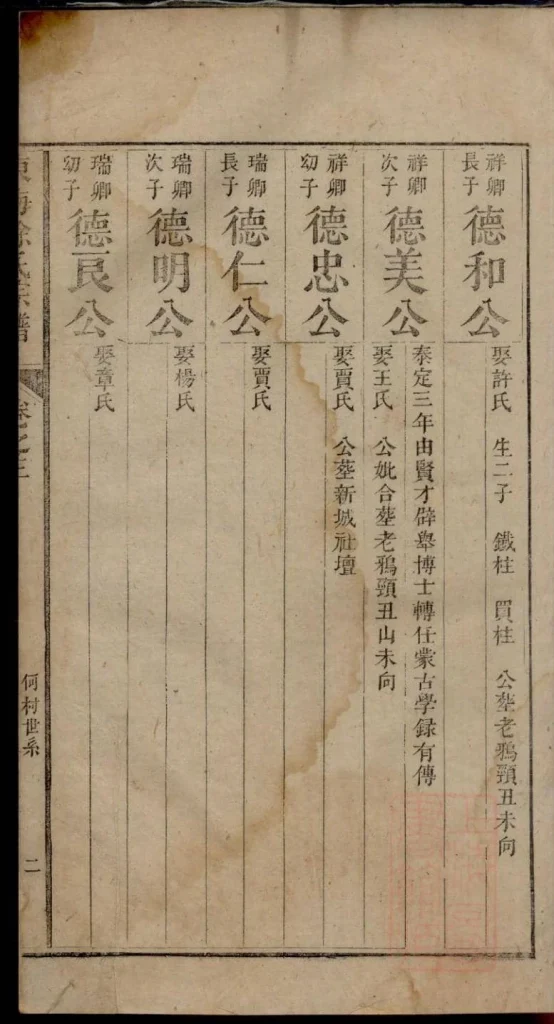 祥卿長子
德和公
娶許氏 生二子 鐵柱 買柱 公塟老鴉頸丑未向
祥卿次子
德美公
泰定三年由賢才辟舉博士轉任蒙古學録有傳
娶王氏 公妣合塟老鴉頸丑山未向
祥卿幼子
德忠公
娶賈氏 公塟新城社壇
瑞卿長子
德仁公
娶賈氏
瑞卿次子
德明公
娶楊氏
瑞卿幼子
德良公
娶章氏
東海徐氏宗譜
卷之三
何村世系
二